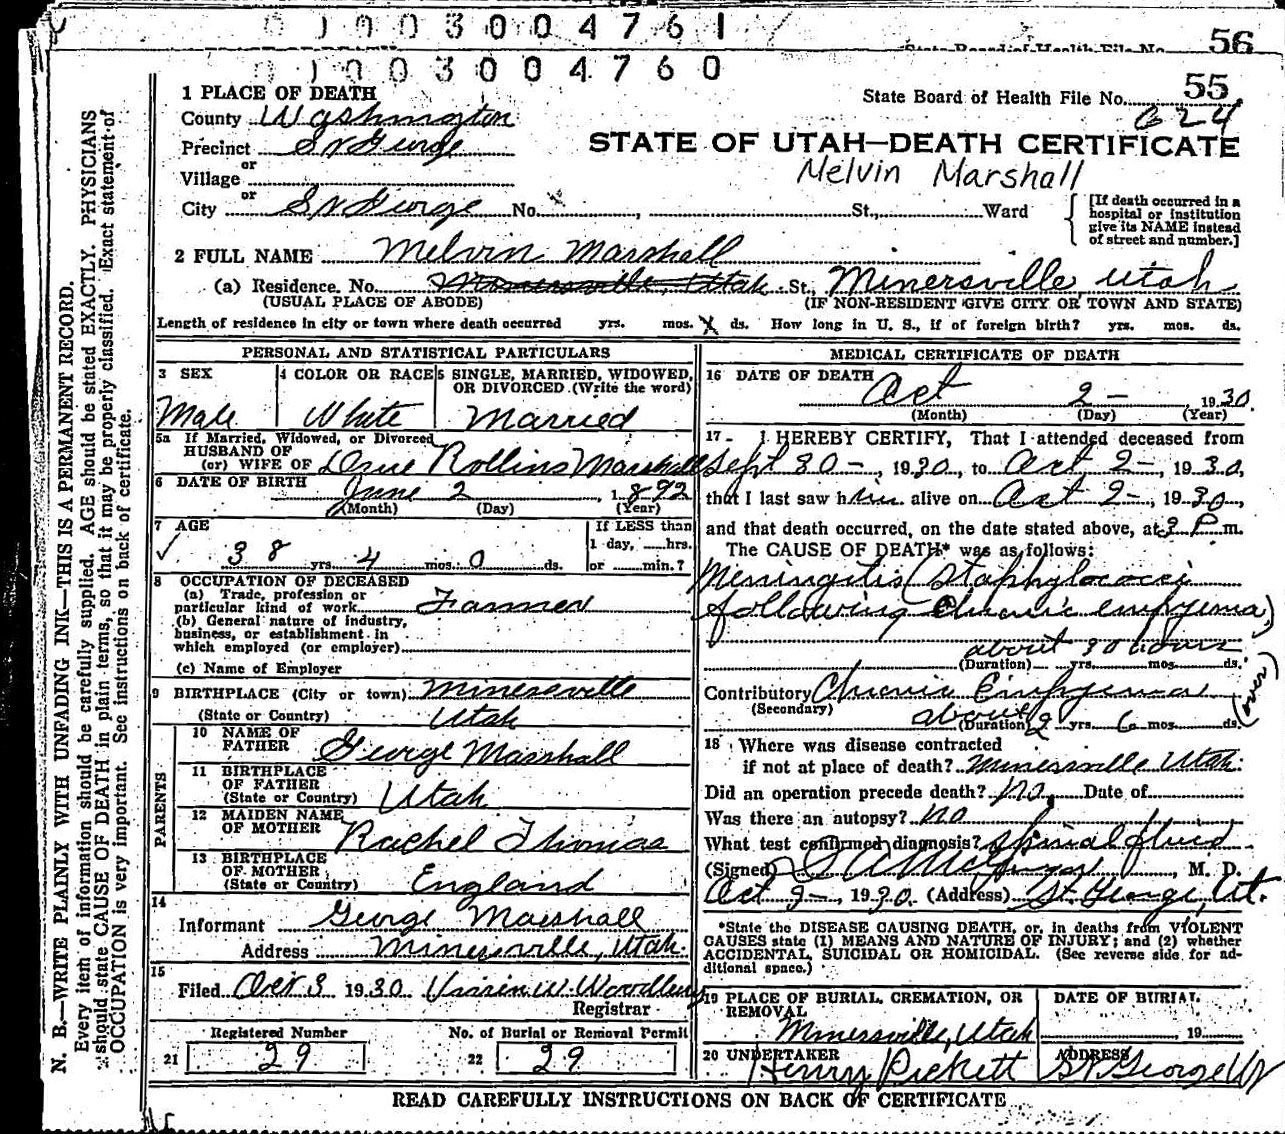 0 1 0 0 3 0 0 4 7 6 1
State Board of Health File No. 56
0 1 0 0 3 0 0 4 7 6 0
1 PLACE OF DEATH
State Board of Health File No. 55
County Washington
624
Precinct St George
STATE OF UTAH—DEATH CERTIFICATE
or
Village
Melvin Marshall
or
City St George No. , St., Ward
[If death occurred in a
hospital or institution
give its NAME instead
of street and number.]
2 FULL NAME Melvin Marshall
(a) Residence. No. Minersville, Utah St., Minersville, Utah
(USUAL PLACE OF ABODE) (IF NON-RESIDENT GIVE CITY OR TOWN AND STATE)
Length of residence in city or town where death occurred yrs. mos. X ds. How long in U. S., if of foreign birth? yrs. mos. ds.
PERSONAL AND STATISTICAL PARTICULARS
3 SEX
Male
4 COLOR OR RACE
White
5 SINGLE, MARRIED, WIDOWED,
OR DIVORCED (Write the word)
Married
5a If Married, Widowed, or Divorced
HUSBAND OF
(or) WIFE OF Rollins Marshall
6 DATE OF BIRTH
June 2, 1892
(Month) (Day) (Year)
7 AGE
38 yrs. 4 mos. 0 ds.
If LESS than
1 day, hrs.
or min.?
8 OCCUPATION OF DECEASED
(a) Trade, profession or
particular kind of work Farmer
(b) General nature of industry,
business, or establishment in
which employed (or employer)
(c) Name of Employer
9 BIRTHPLACE (City or town) Minersville
(State or Country) Utah
PARENTS
10 NAME OF
FATHER George Marshall
11 BIRTHPLACE
OF FATHER
(State or Country) Utah
12 MAIDEN NAME
OF MOTHER Rachel Thomas
13 BIRTHPLACE
OF MOTHER
(State or Country) England
14
Informant George Marshall
Address Minersville, Utah.
15
Filed Oct 3 1930 W. Woodbury
Registrar
Registered Number
21 29
No. of Burial or Removal Permit
22 29
MEDICAL CERTIFICATE OF DEATH
16 DATE OF DEATH
Oct 2 - 1930
(Month) (Day) (Year)
17 I HEREBY CERTIFY, That I attended deceased from
Sept 30 -, 1930, to Oct 2 -, 1930,
that I last saw him alive on Oct 2 -, 1930,
and that death occurred, on the date stated above, at 3 P m.
The CAUSE OF DEATH* was as follows:
Meningitis (Staphylococci
following chronic empyema)
about 30 hours
(Duration) yrs. mos. ds.
Contributory Chronic Empyema
(Secondary)
(over)
about
(Duration) 2 yrs. 6 mos. ds.
18 Where was disease contracted
if not at place of death? Minersville Utah.
Did an operation precede death? no. Date of
Was there an autopsy? no
What test confirmed diagnosis? Spinal fluid
(Signed) , M. D.
Oct 2 -, 1930. (Address) St. George, Ut.
*State the DISEASE CAUSING DEATH, or, in deaths from VIOLENT
CAUSES state (1) MEANS AND NATURE OF INJURY; and (2) whether
ACCIDENTAL, SUICIDAL OR HOMICIDAL. (See reverse side for ad-
ditional space.)
19 PLACE OF BURIAL, CREMATION, OR
REMOVAL
Minersville, Utah
DATE OF BURIAL
19
20 UNDERTAKER
Henry Pickett
ADDRESS
St George Ut
READ CAREFULLY INSTRUCTIONS ON BACK OF CERTIFICATE
N. B.—WRITE PLAINLY WITH UNFADING INK—THIS IS A PERMANENT RECORD.
Every item of information should be carefully supplied. AGE should be stated EXACTLY. PHYSICIANS
should state CAUSE OF DEATH in plain terms, so that it may be properly classified. Exact statement of
OCCUPATION is very important. See instructions on back of certificate.